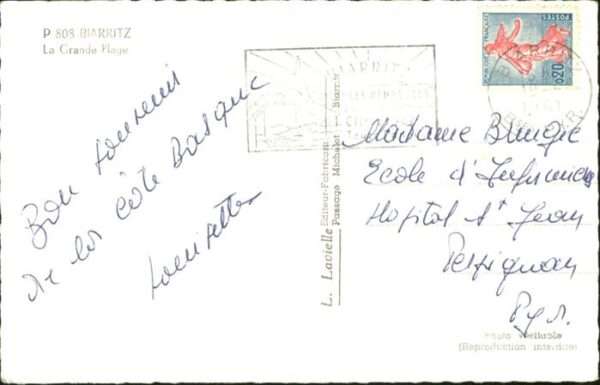 P 808 BIARRITZ
La Grande Plage
Bon souvenir
de la côte Basque
Louisette
L. Lavielle Editeur-Fabricant
Passage Michelet - Biarritz
BIARRITZ
REPUBLIQUE FRANÇAISE
POSTES
0,20
Madame
Ecole d'Infirmières
Hopital St Jean
Perpignan
P.yr.
Photo Véritable
(Reproduction interdite)